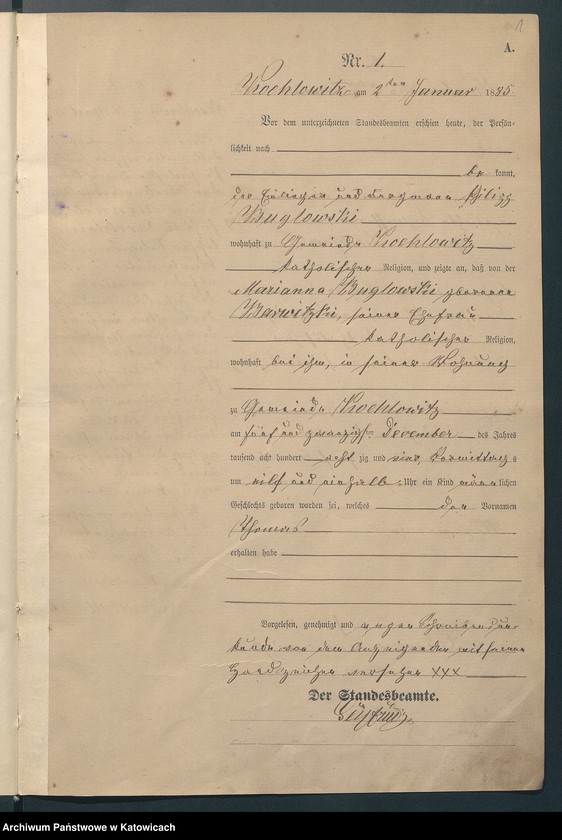 1
A.
Nr. 1.
Kochlowitz am 2ten Januar 1885
Vor dem unterzeichneten Standesbeamten erschien heute, der Persön-
lichkeit nach
be kannt,
der Häusler und Bergmann Philipp
Buglowski
wohnhaft zu Gemeinde Kochlowitz
katholischer Religion, und zeigte an, daß von der
Marianna Buglowski geborene
seiner Ehefrau
katholischer Religion,
wohnhaft bei ihm, in seiner Wohnung
zu Gemeinde Kochlowitz
am fünf und zwanzigsten December des Jahres
tausend acht hundert acht zig und vier, Vormittags
um elf und einhalb Uhr ein Kind männlichen
Geschlechts geboren worden sei, welches den Vornamen
Thomas
erhalten habe
Vorgelesen, genehmigt und wegen Schreibensun-
kunde von dem Anzeigenden mit seinem
Handzeichen versehen XXX
Der Standesbeamte.
Archiwum Państwowe w Katowicach